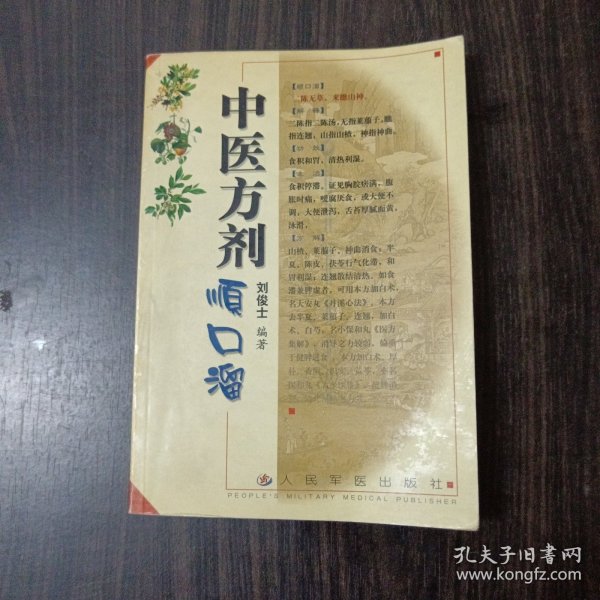 中医方剂
顺口溜
刘俊士 编著
【顺口溜】
二陈无草，来撒山神。
【解释】
二陈指二陈汤，无指莱菔子，翘
指连翘，山指山楂，神指神曲。
【功效】
食积和胃，清热利湿。
【主治】
食积停滞，证见胸脘痞满，腹
胀时痛，嗳腐厌食，或大便不
调，大便泄泻，舌苔厚腻而黄，
脉滑。
【方解】
山楂、莱菔子、神曲消食；半
夏、陈皮、茯苓行气化滞，和
胃利湿；连翘散结清热。如食
滞兼脾虚者，可用本方加白术，
名大安丸《丹溪心法》。本方
去半夏、莱菔子、连翘，加白
术、白芍，名小保和丸《医方
集解》，消导之力较弱，偏重
于健脾进食
人民军医出版社
PEOPLE'S MILITARY MEDICAL PUBLISHER
孔夫子旧书网
www.kongfz.com